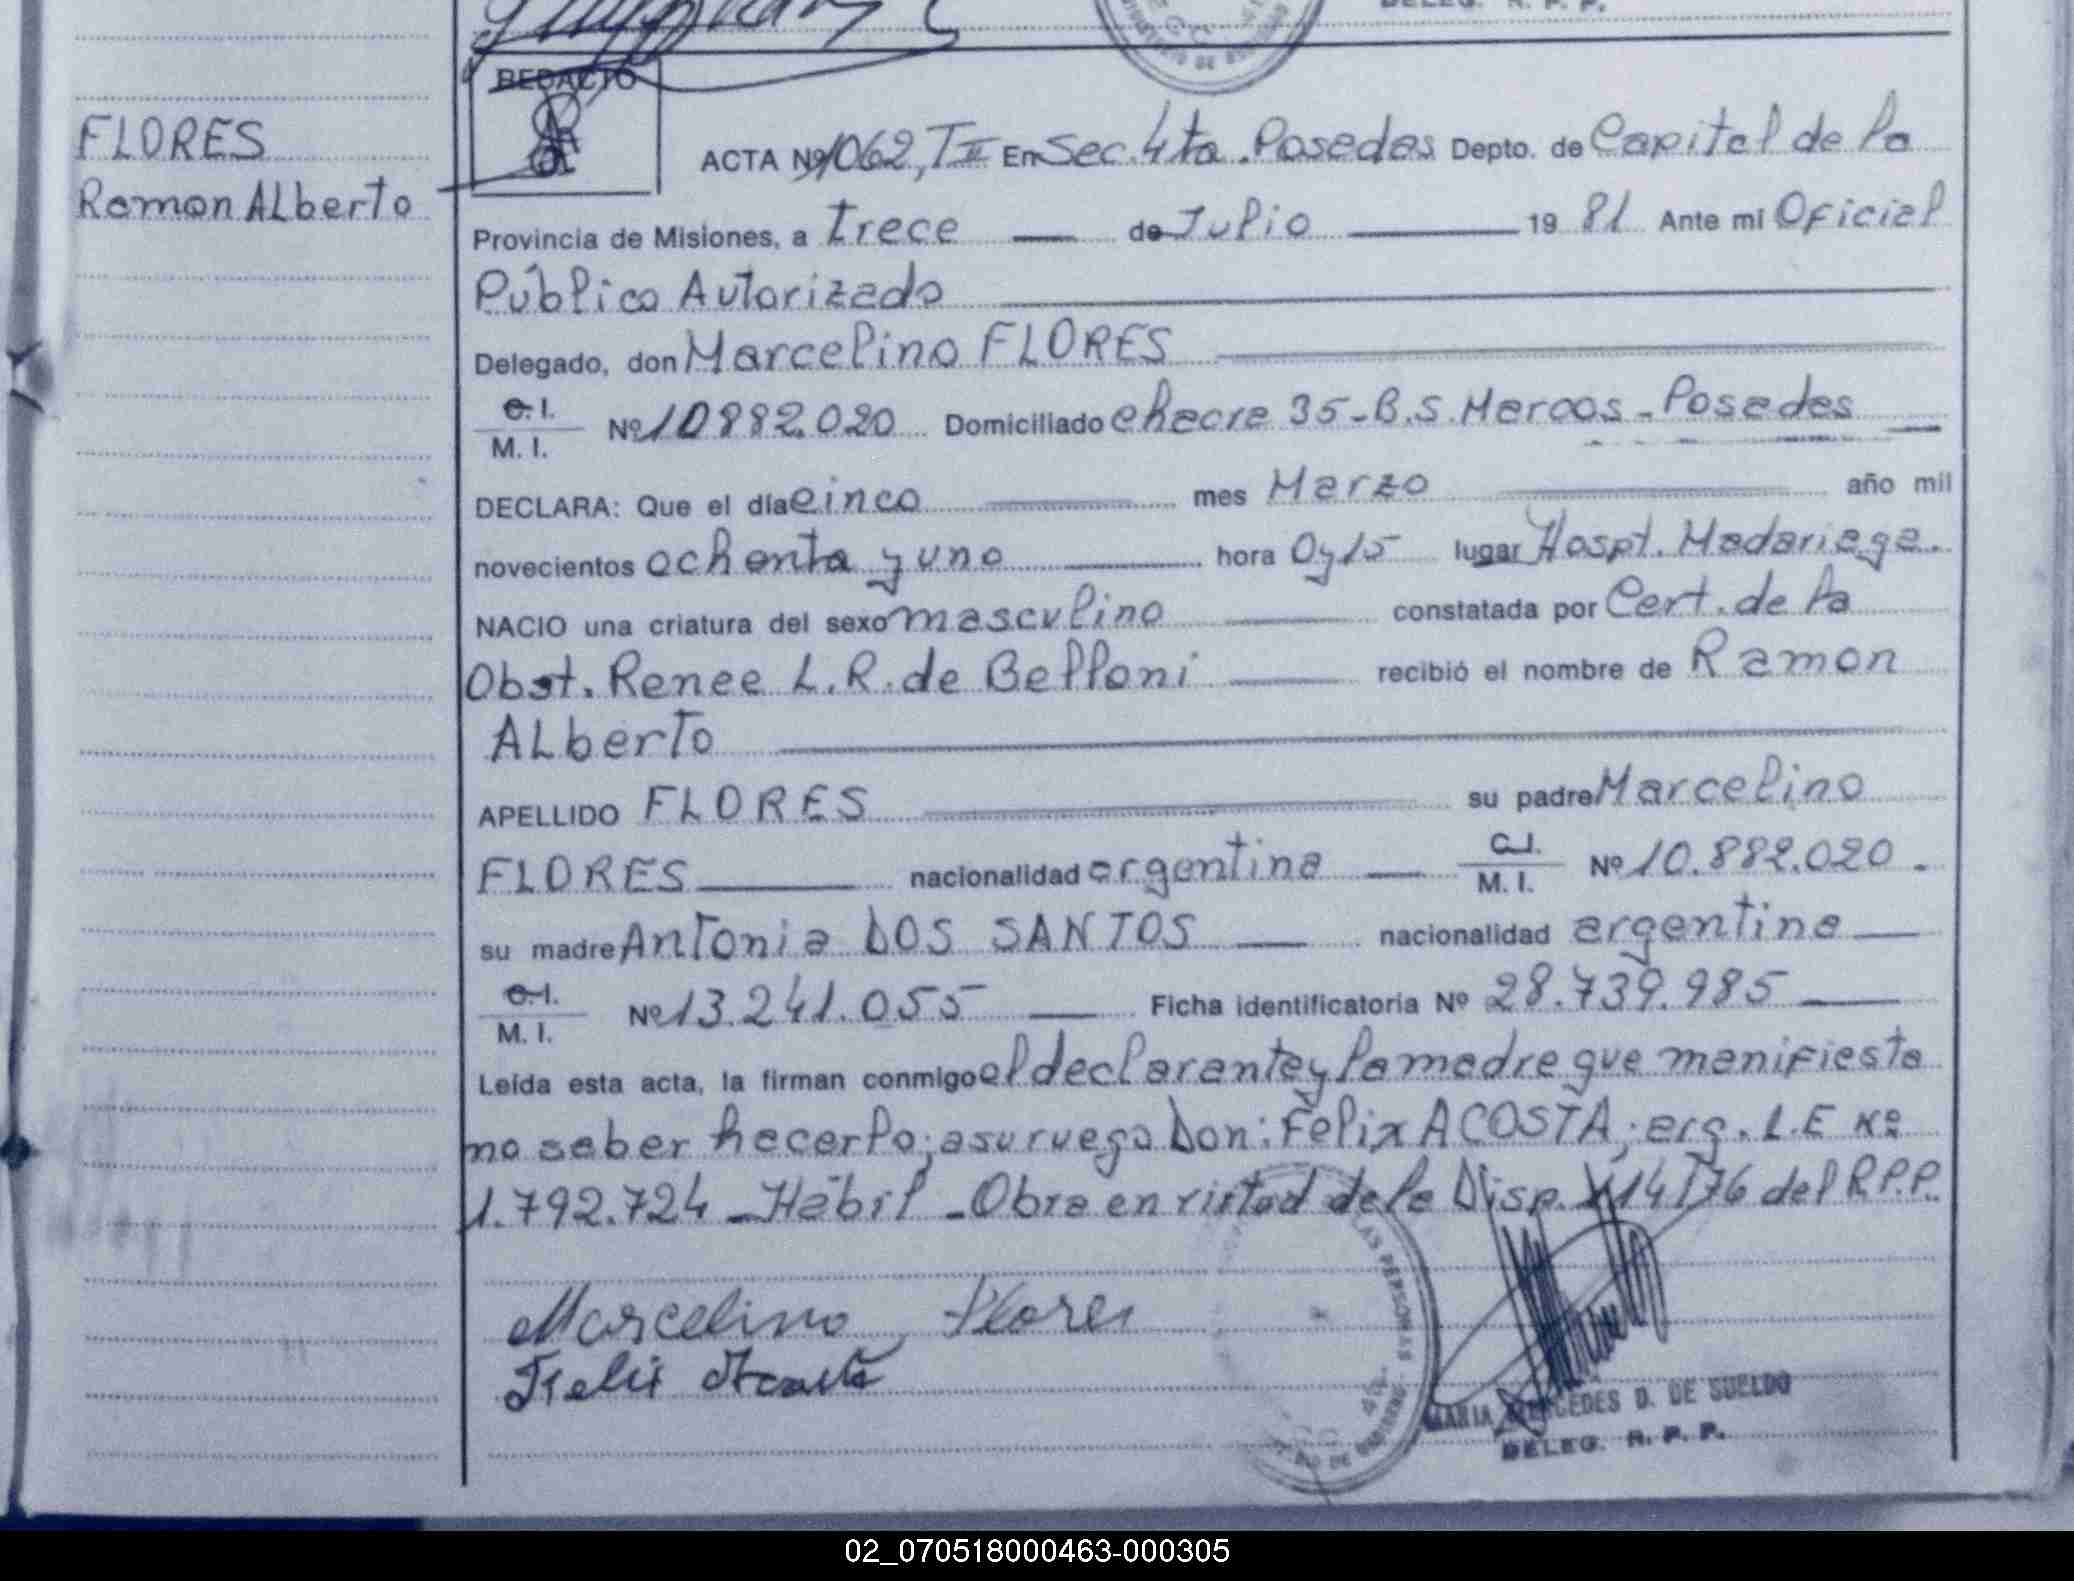 DELEG. R. P. P.
REDACTO
FLORES
Ramon ALberto
ACTA Nº 1062, T II En Sec. 4ta. Posadas Depto. de Capital de la
Provincia de Misiones, a trece de Julio 19 81 Ante mi Oficial
Público Autorizado
Delegado, don Marcelino FLORES
C. I.
M. I. Nº 10882.020 Domiciliado chacra 35-B.S. Marcos - Posadas
DECLARA: Que el día cinco mes Marzo año mil
novecientos ochenta y uno hora 0y15 lugar Hospt. Madariaga.
NACIO una criatura del sexo masculino constatada por Cert. de la
Obst. Renee L.R. de Belloni recibió el nombre de Ramon
ALberto
APELLIDO FLORES su padre Marcelino
FLORES nacionalidad argentina C.I. M. I. Nº 10.882.020.
su madre Antonia DOS SANTOS nacionalidad argentina
C.I.
M. I. Nº 13.241.055 Ficha identificatoria Nº 28.739.985
Leída esta acta, la firman conmigo el declarante y la madre que manifiesta
no saber hacerlo; a su ruego Don: Felix ACOSTA; arg. L.E Nº
1.792.724 - Hábil - Obra en virtud de la Disp. 14/76 del R.P.P.
Marcelino Flores
Felix Acosta
LAS PERSONAS
MARIA MERCEDES D. DE SUELDO
DELEG. R. P. P.
02_070518000463-000305